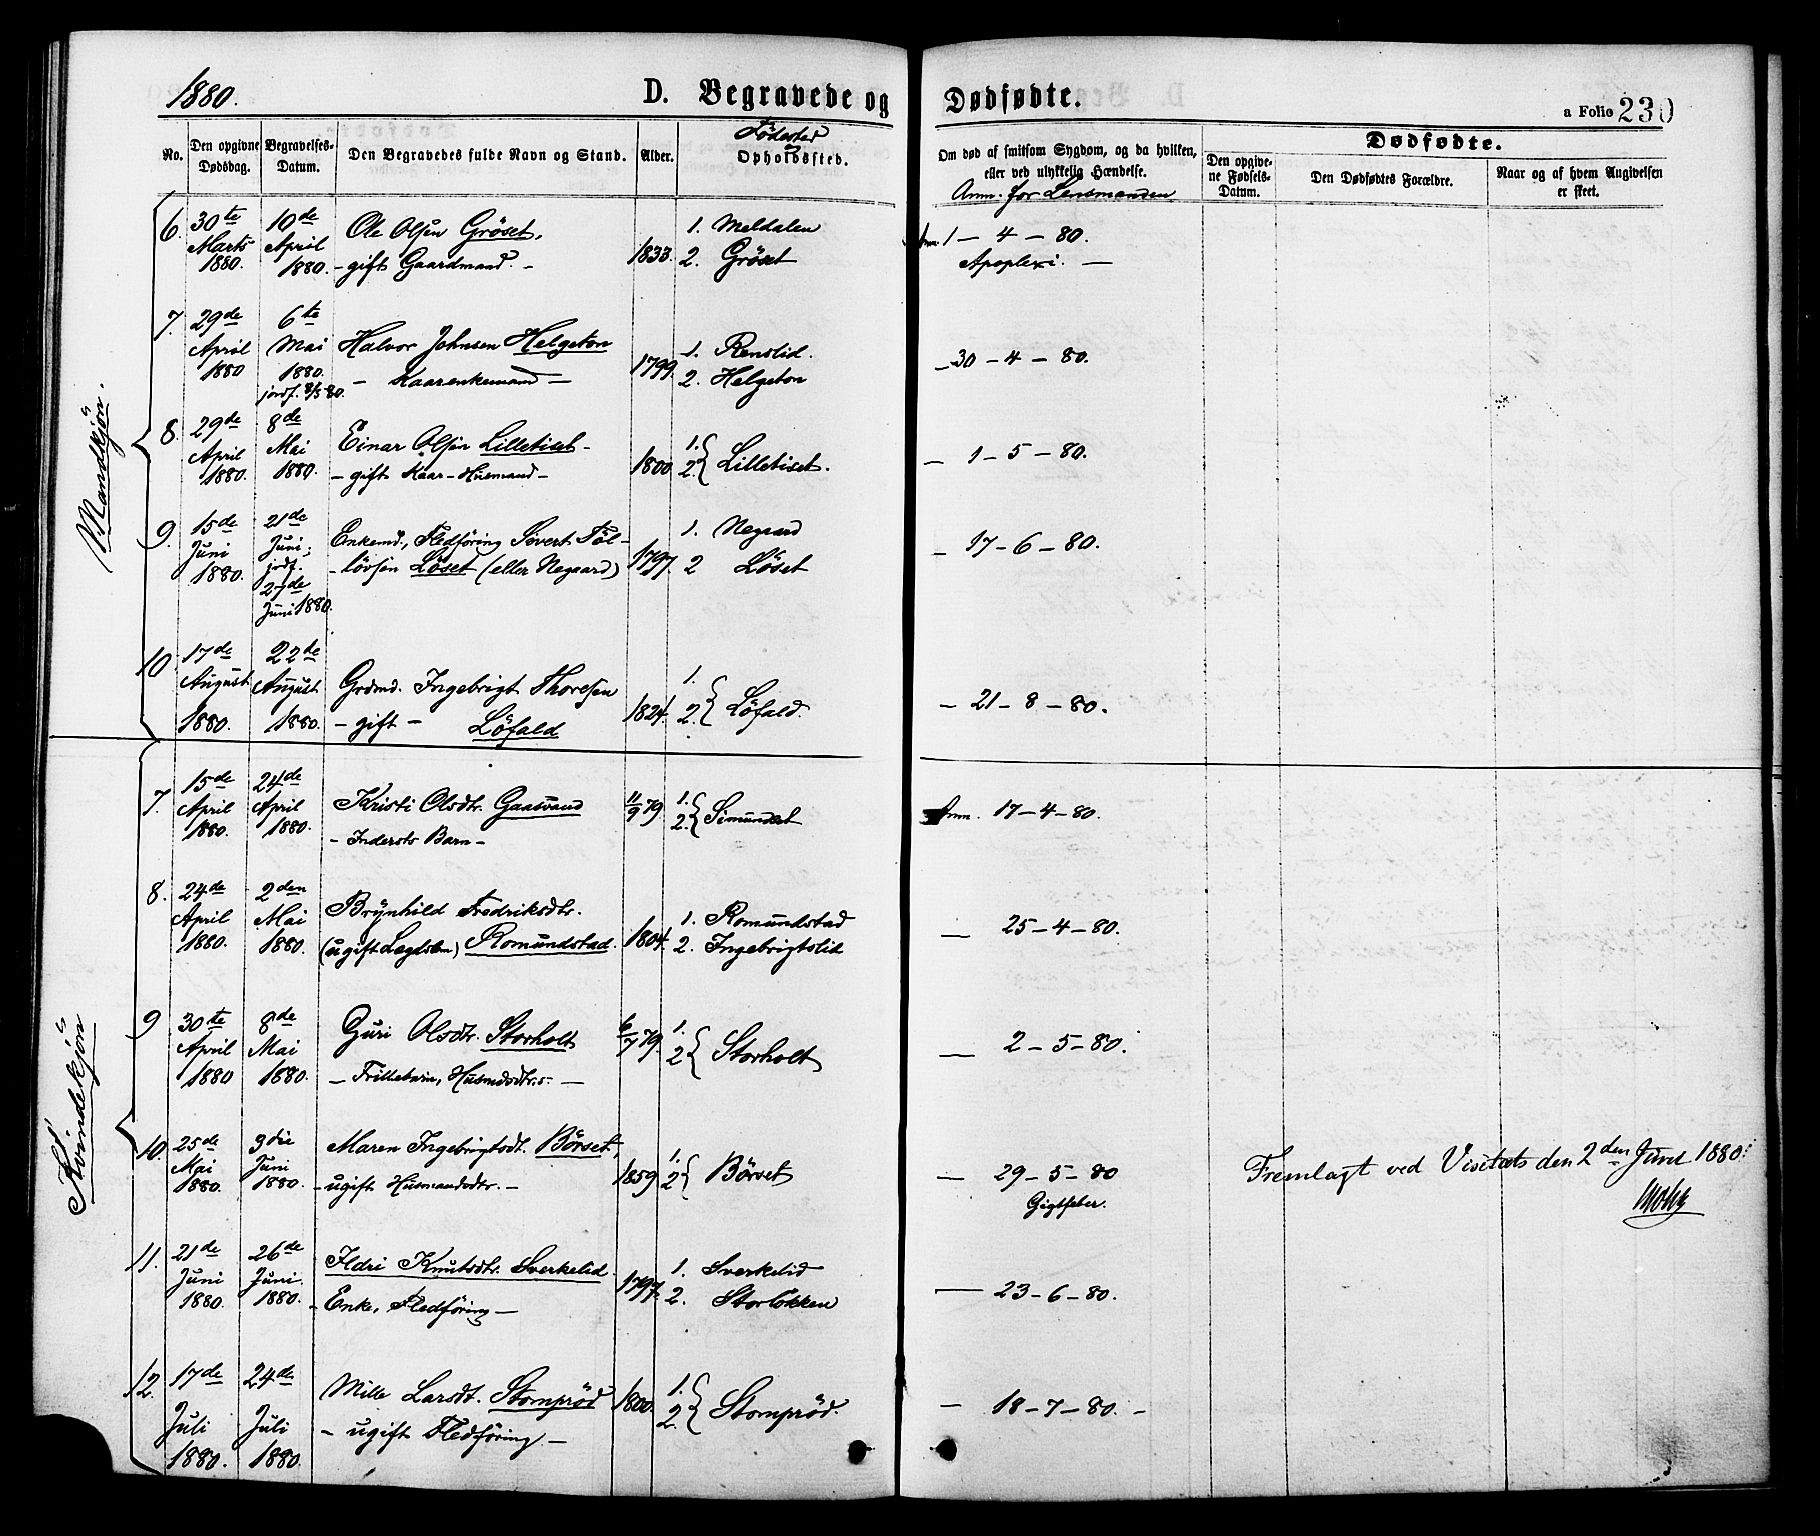 1880.
D. Begravede og Dødfødte.
a Folio 230
No.
Den opgivne Dødsdag.
Begravelses-Datum.
Den Begravedes fulde Navn og Stand.
Alder.
Födested
Opholdssted.
Om død af smitsom Sygdom, og da hvilken,
eller ved ulykkelig Hændelse.
Anm. for Lensmanden
Dødfødte.
Den opgivne Fødsels-Datum.
Den Dødfødtes Forældre.
Naar og af hvem Angivelsen er skeet.
Mandkjön.
6. 30te Marts 1880. 10de April 1880. Ole Olsen Gröset, 1833. 1. Meldalen Anm. 1 - 4 - 80.
- gift Gaardmand. - 2. Gröset Apoplexi. -
7. 29de April 1880 6te Mai 1880. jordf. 8/5 80. Halvor Johnsen Helgeton 1799. 1. Renslid. - 30 - 4 - 80.
- Kaarenkemand - 2. Helgeton
8. 29de April 1880. 8de Mai 1880. Einar Olsen Lilletiset - 1800. 1. 2. Lilletiset. - 1 - 5 - 80.
- gift Kaar-Husmand -
9. 15de Juni 1880. 21de Juni; jordf. 27de Juni 1880. Enkemd., Fledföring Sivert Föl- 1797. 1. Negaard - 17 - 6 - 80.
- lövsen Löset (eller Negaard) 2 Löset
10. 17de August 1880. 22de August 1880. Grdmd. Ingebrigt Thoresen 1824. 1. 2. Löfald. - 21 - 8 - 80.
- gift - Löfald
Kvindekjön
7. 15de April 1880. 24de April 1880. Kristi Olsdtr. Gaasvand 11/9 79. 1. 2. Simundset Anm. 17 - 4 - 80.
- Indersts Barn -
8. 24de April 1880. 2den Mai 1880. Brynhild Fredriksdtr. 1804. 1. Romundstad - 25 - 4 - 80.
(ugift Lægdslem) Romundstad. 2. Ingebrigtslid
9 30te April 1880 8de Mai 1880. Guri Olsdtr. Storholt 6/7 79. 1. 2 Storholt - 2 - 5 - 80.
- Frillebarn, Husmdsdtrs. -
10. 25de Mai 1880. 3die Juni 1880. Maren Ingebrigtsdt. Börset, 1859. 1. 2 Börset - 29 - 5 - 80
- ugift Husmandsdtr. - Gigtfeber.
Fremlagt ved Visitats den 2den Juni 1880.
11. 21de Juni 1880. 26de Juni. 1880. Ildri Knutsdtr. Sverkelid. 1797. 1. Sverkelid - 23 - 6 - 80.
- Enke, Fledföring - 2. Storlökken
12. 17de Juli 1880. 24de Juli 1880. Mille Larsdt. Stompröd 1800. 1. 2. Stompröd. - 18 - 7 - 80. -
- ugift Fledföring. -